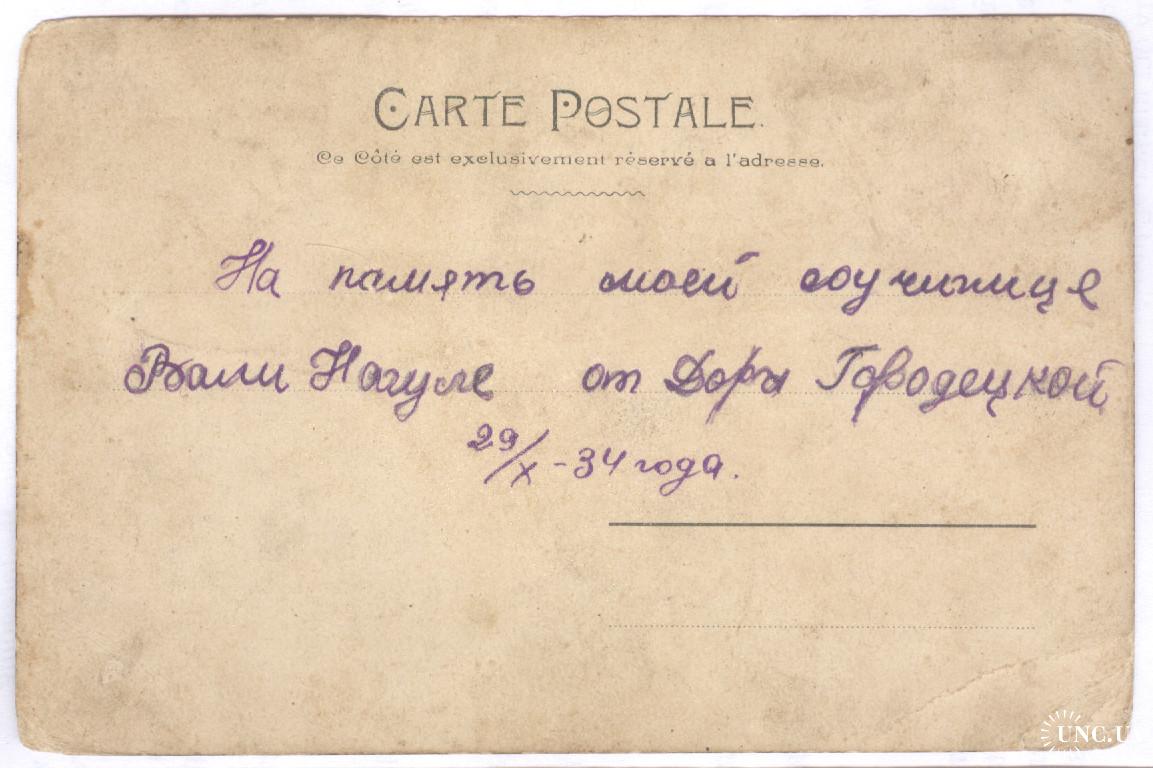 CARTE POSTALE.
Ce Côté est exclusivement réservé a l'adresse.
На память моей соученице
Вали Нагуле от Доры Городецкой
29/X - 34 года.
UNC.U